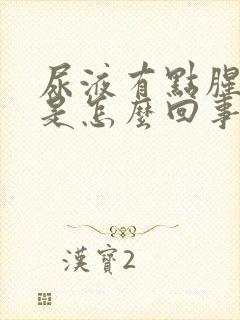 尿液有點腥
是怎麼回事
漢寶2